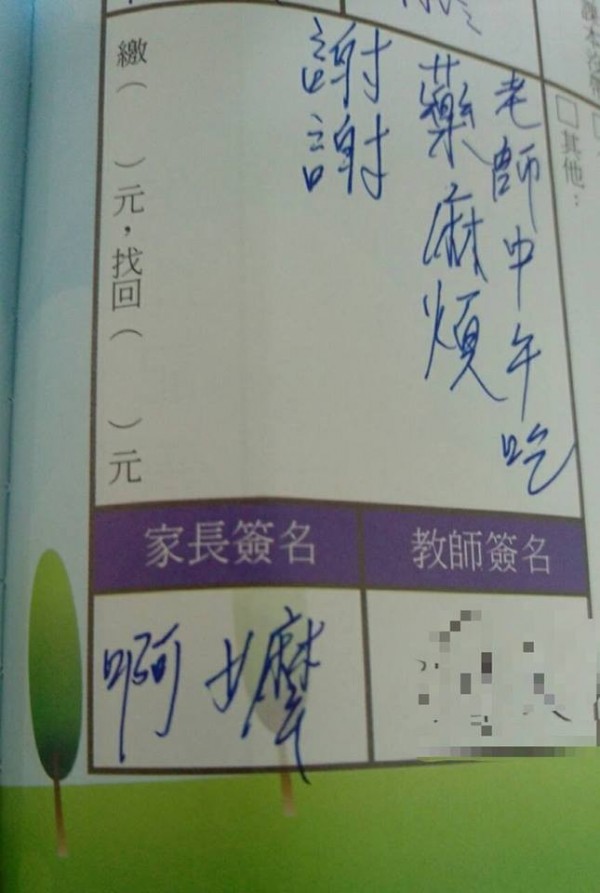 老師中午吃
藥麻煩
謝謝
□其他：
繳（　　）元，找回（　　）元
家長簽名
教師簽名
啊嬤